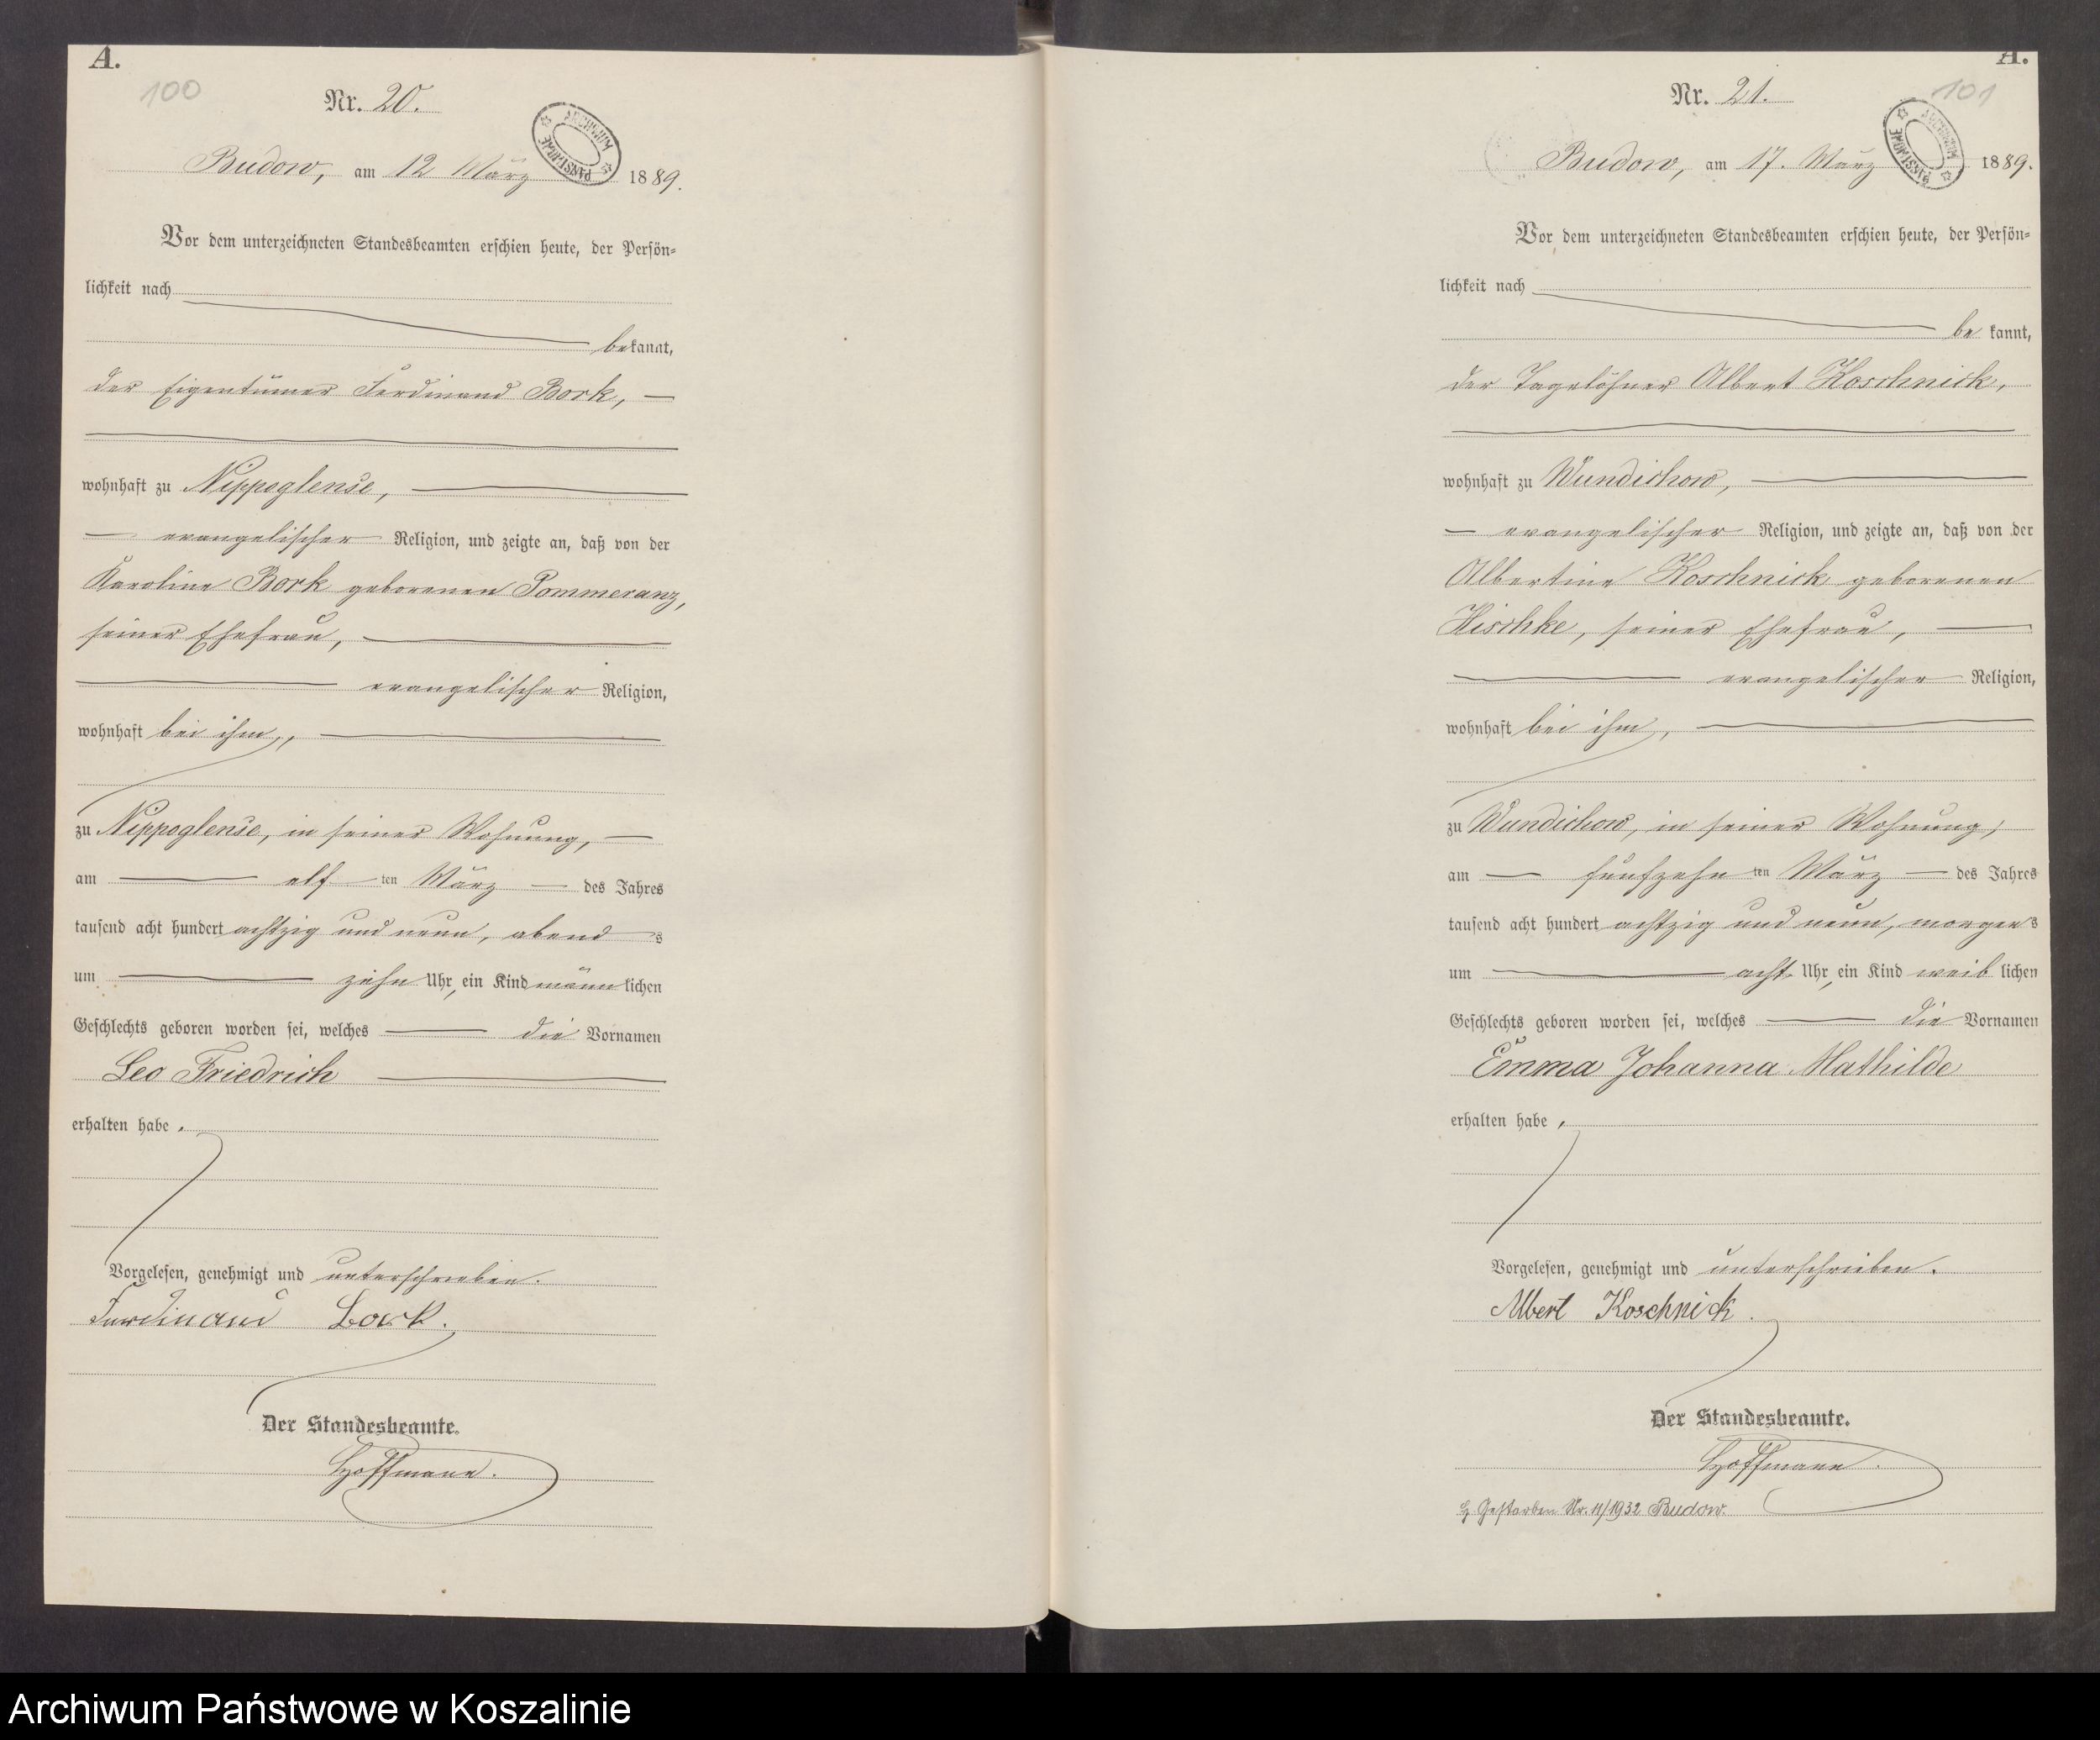 A.
100
Nr. 20.
ARCHIWUM PAŃSTWOWE
Budow, am 12 März 1889.
Vor dem unterzeichneten Standesbeamten erschien heute, der Persön-
lichkeit nach
bekannt,
der Eigentümer Ferdinand Bork,
wohnhaft zu Nippoglense,
evangelischer Religion, und zeigte an, daß von der
Karoline Bork geborenen Pommeranz,
seiner Ehefrau,
evangelischer Religion,
wohnhaft bei ihm,
zu Nippoglense, in seiner Wohnung,
am elf ten März des Jahres
tausend acht hundert achtzig und neun, abend s
um zehn Uhr, ein Kind männ lichen
Geschlechts geboren worden sei, welches die Vornamen
Leo Friedrich
erhalten habe.
Vorgelesen, genehmigt und unterschrieben.
Ferdinand Bork.
Der Standesbeamte.
Hoffmann.
A.
101
Nr. 21.
ARCHIWUM PAŃSTWOWE
Budow, am 17. März 1889.
Vor dem unterzeichneten Standesbeamten erschien heute, der Persön-
lichkeit nach
be kannt,
der Tagelöhner Albert Koschnick,
wohnhaft zu Wundichow,
evangelischer Religion, und zeigte an, daß von der
Albertine Koschnick geborenen
Hischke, seiner Ehefrau,
evangelischer Religion,
wohnhaft bei ihm,
zu Wundichow, in seiner Wohnung,
am fünfzehn ten März des Jahres
tausend acht hundert achtzig und neun, morgen s
um acht Uhr, ein Kind weib lichen
Geschlechts geboren worden sei, welches die Vornamen
Emma Johanna Mathilde
erhalten habe.
Vorgelesen, genehmigt und unterschrieben.
Albert Koschnick.
Der Standesbeamte.
Hoffmann.
Gestorben Nr. 11/1932 Budow.
Archiwum Państwowe w Koszalinie